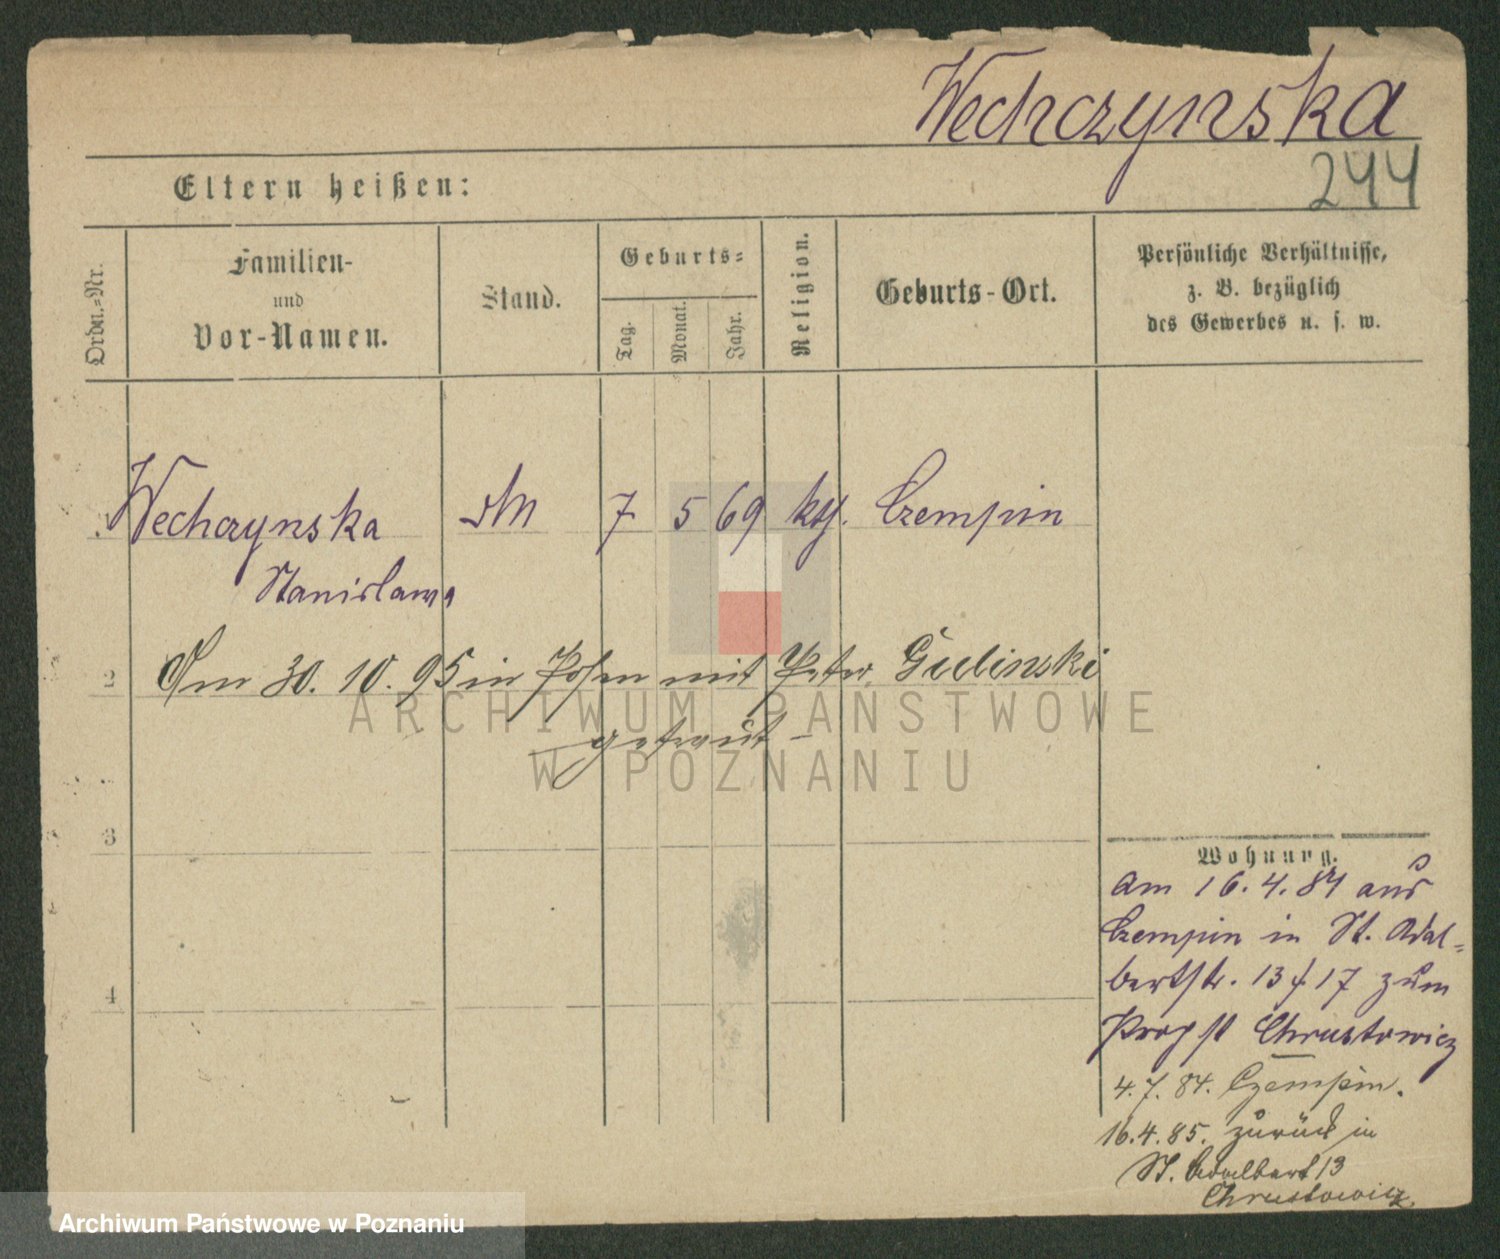 Wechczynska
244
Eltern heißen:
Ordn.-Nr.
Familien-
und
Vor-Namen.
Stand.
Geburts-
Tag.
Monat.
Jahr.
Religion.
Geburts-Ort.
Persönliche Verhältnisse,
z. B. bezüglich
des Gewerbes u. s. w.
1 Wechczynska 7 5 69 kth. Czempin
Stanislawa
2 Am 30. 10. 95 in Posen mit Peter Gulinski
getraut
ARCHIWUM PAŃSTWOWE
W POZNANIU
3
4
Wohnung.
Am 16. 4. 84 aus
Czempin in St. Adal-
bertstr. 13/17 zum
Propst Chrustowicz
4. 7. 84. Czempin.
16. 4. 85. zurück in
St. Adalbert 13
Chrustowicz.
Archiwum Państwowe w Poznaniu